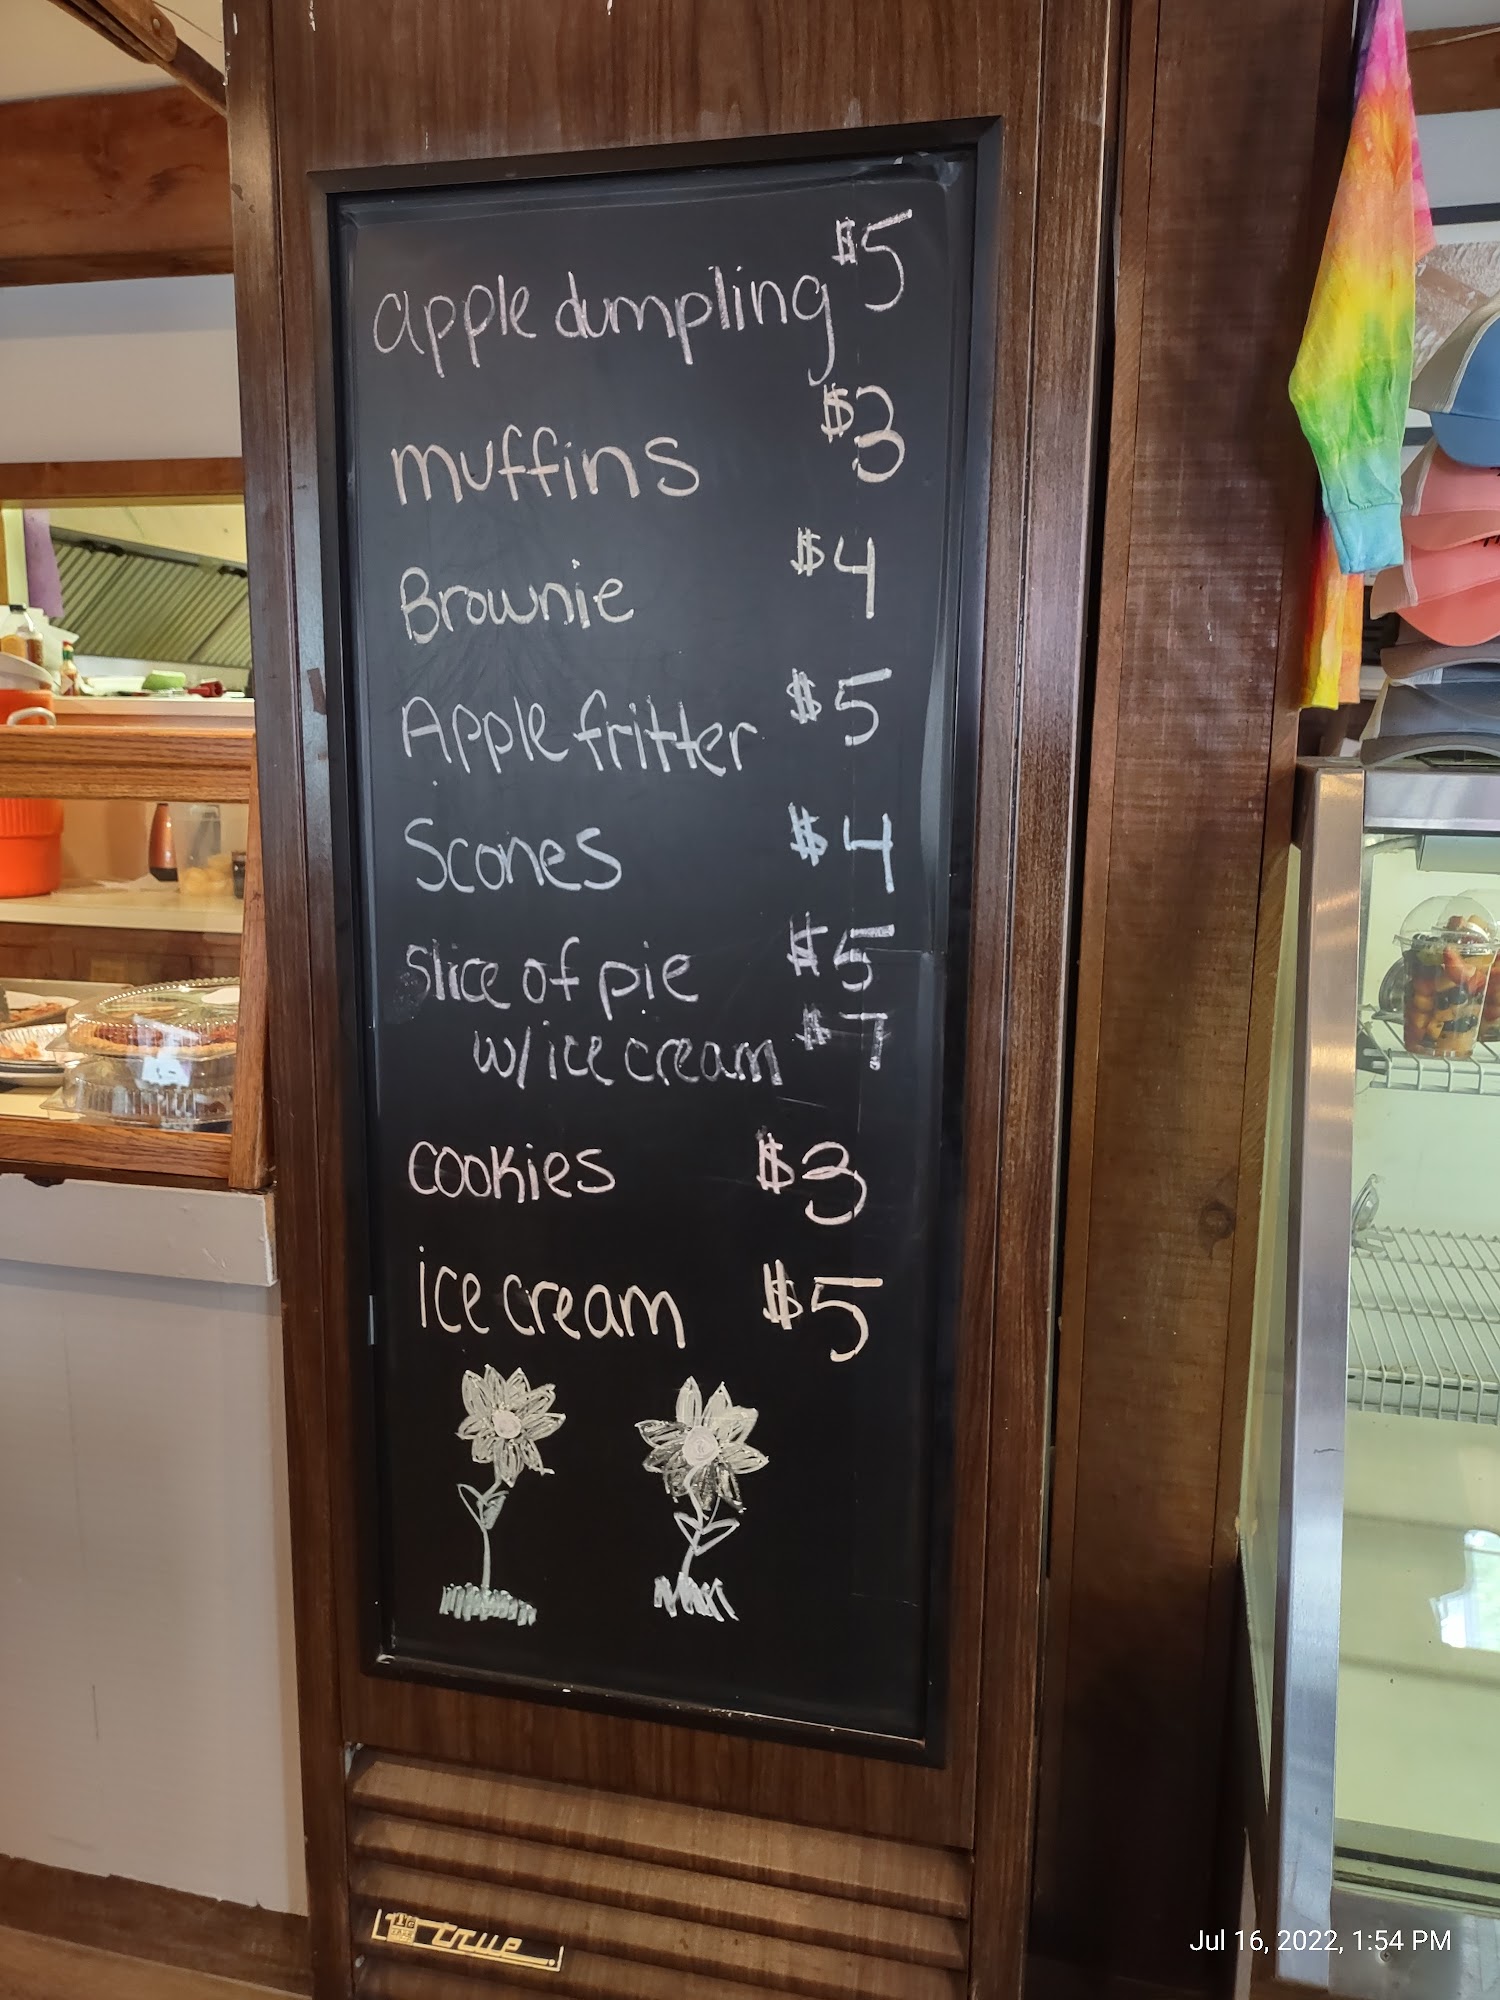 apple dumpling $5
muffins $3
Brownie $4
Apple fritter $5
Scones $4
Slice of pie $5
w/ ice cream $7
cookies $3
ice cream $5
true
Jul 16, 2022, 1:54 PM